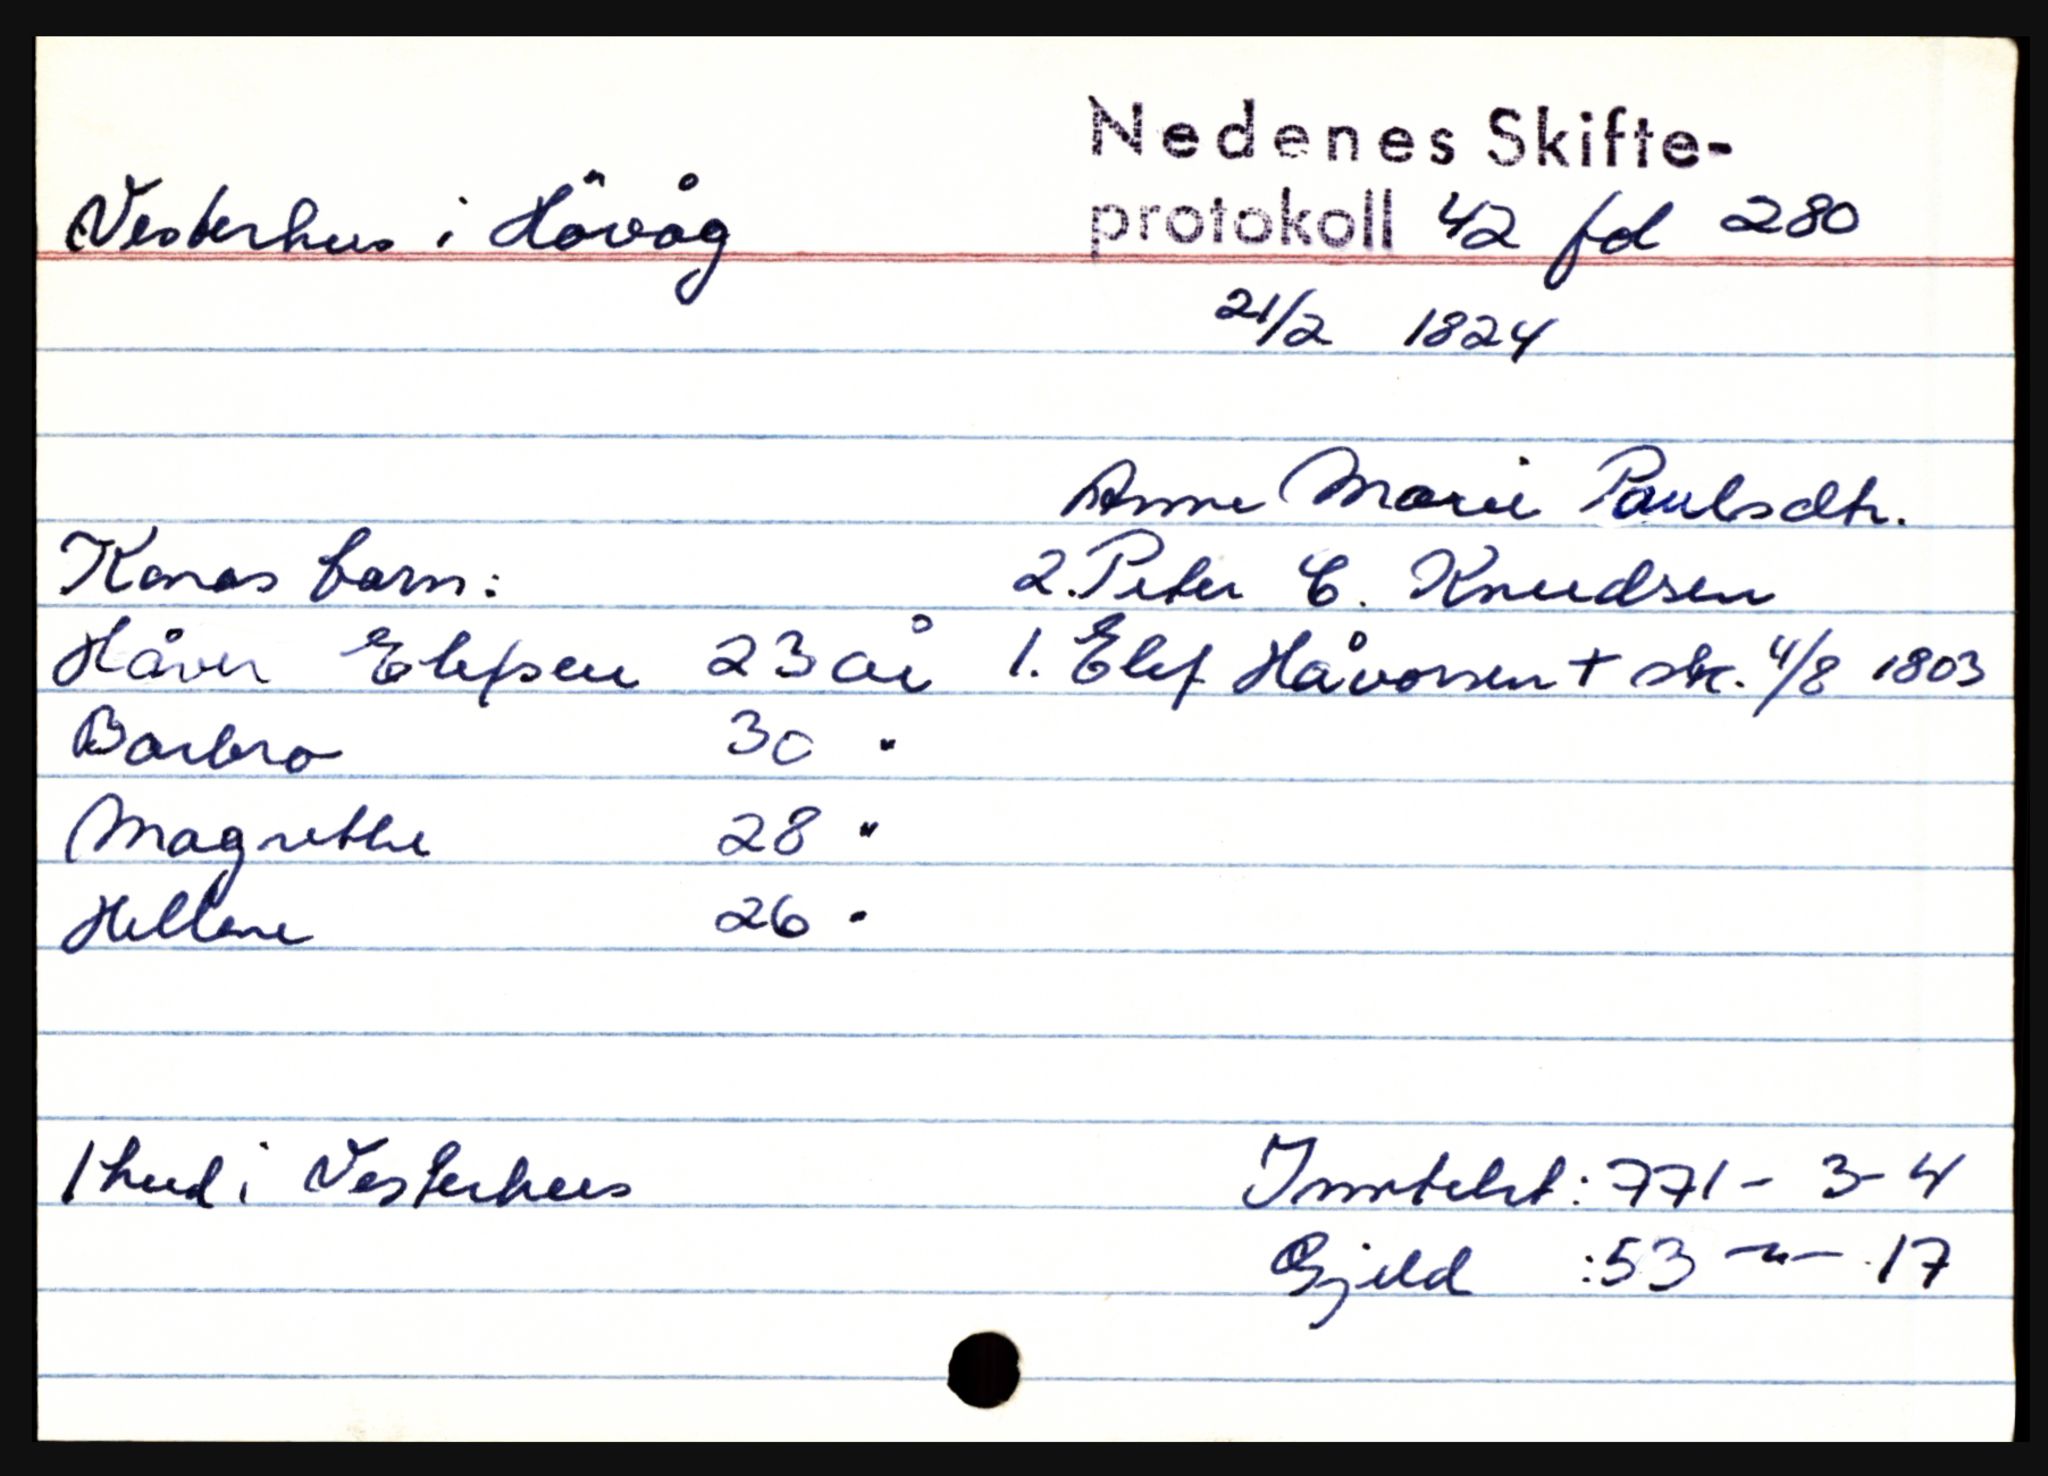 Nedenes Skifte-
Vesterhus i Hövåg protokoll 42 fol 280
21/2 1824
Anne Marie Paulsdtr.
Konas barn: 2. Peter C. Knudsen
Håver Elefsen 23 år 1. Elef Håvorsen + sk. 4/8 1803
Barbro 30 "
Magrethe 28 "
Hellene 26 "
1 hud i Vesterhus Inntekt: 771 - 3 - 4
Gjeld : 53 - " - 17